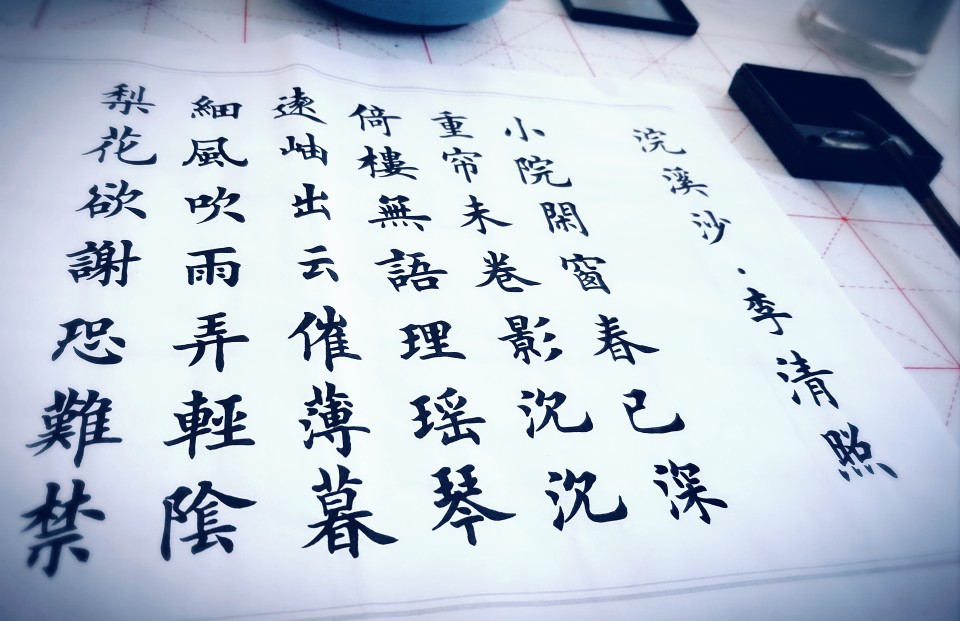 浣溪沙·李清照
小院閑窗春已深
重帘未卷影沉沉
倚樓無語理瑶琴
遠岫出云催薄暮
細風吹雨弄輕陰
梨花欲謝恐難禁